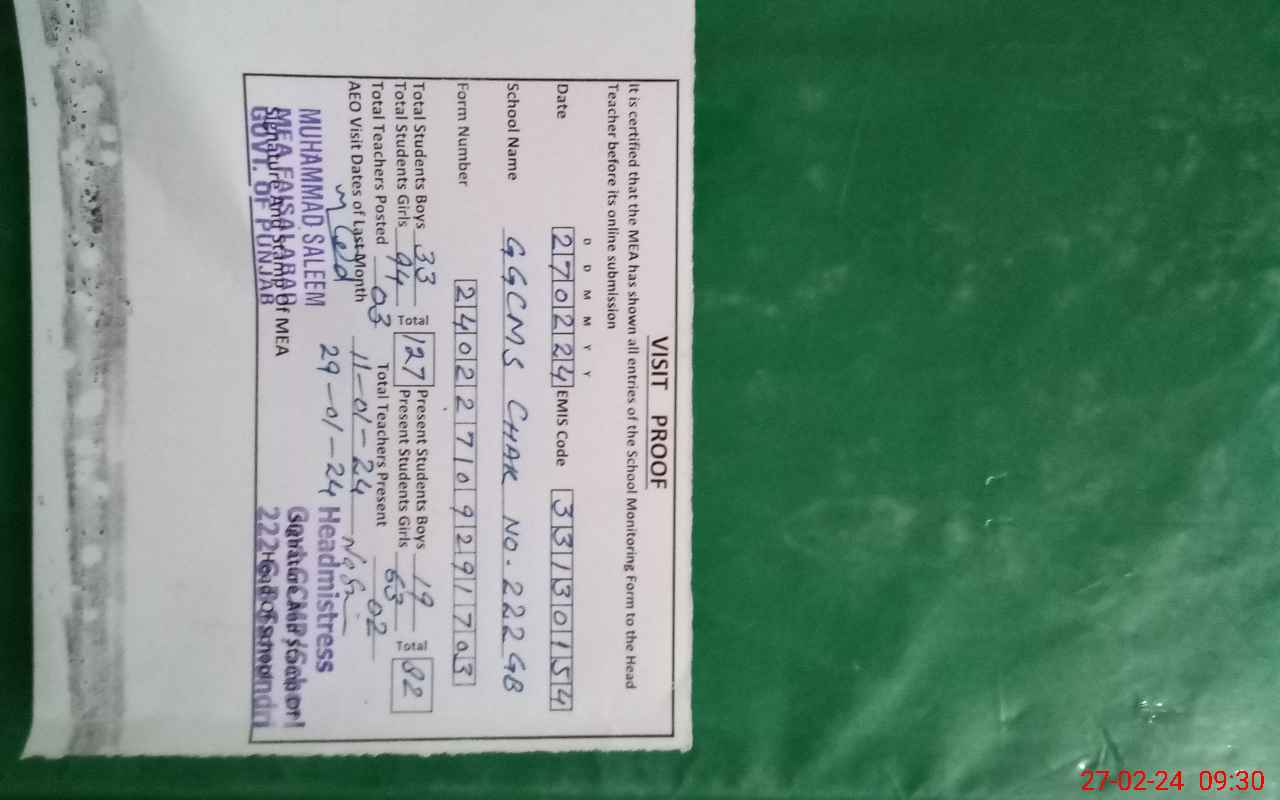 VISIT PROOF
It is certified that the MEA has shown all entries of the School Monitoring Form to the Head
Teacher before its online submission
D D M M Y Y
Date 270224 EMIS Code 33130154
School Name GGCMS CHAK NO. 222 GB
Form Number 24022709291703
Total Students Boys 33 Total 127 Present Students Boys 19 Total 82
Total Students Girls 94 Present Students Girls 63
Total Teachers Posted 03 Total Teachers Present 02
AEO Visit Dates of Last Month 11-01-24
29-01-24
MUHAMMAD SALEEM
MEA FAISALABAD
GOVT. OF PUNJAB
Signature And Stamp Of MEA
Headmistress
Signature And Stamp Of
Head Of School
222
27-02-24 09:30